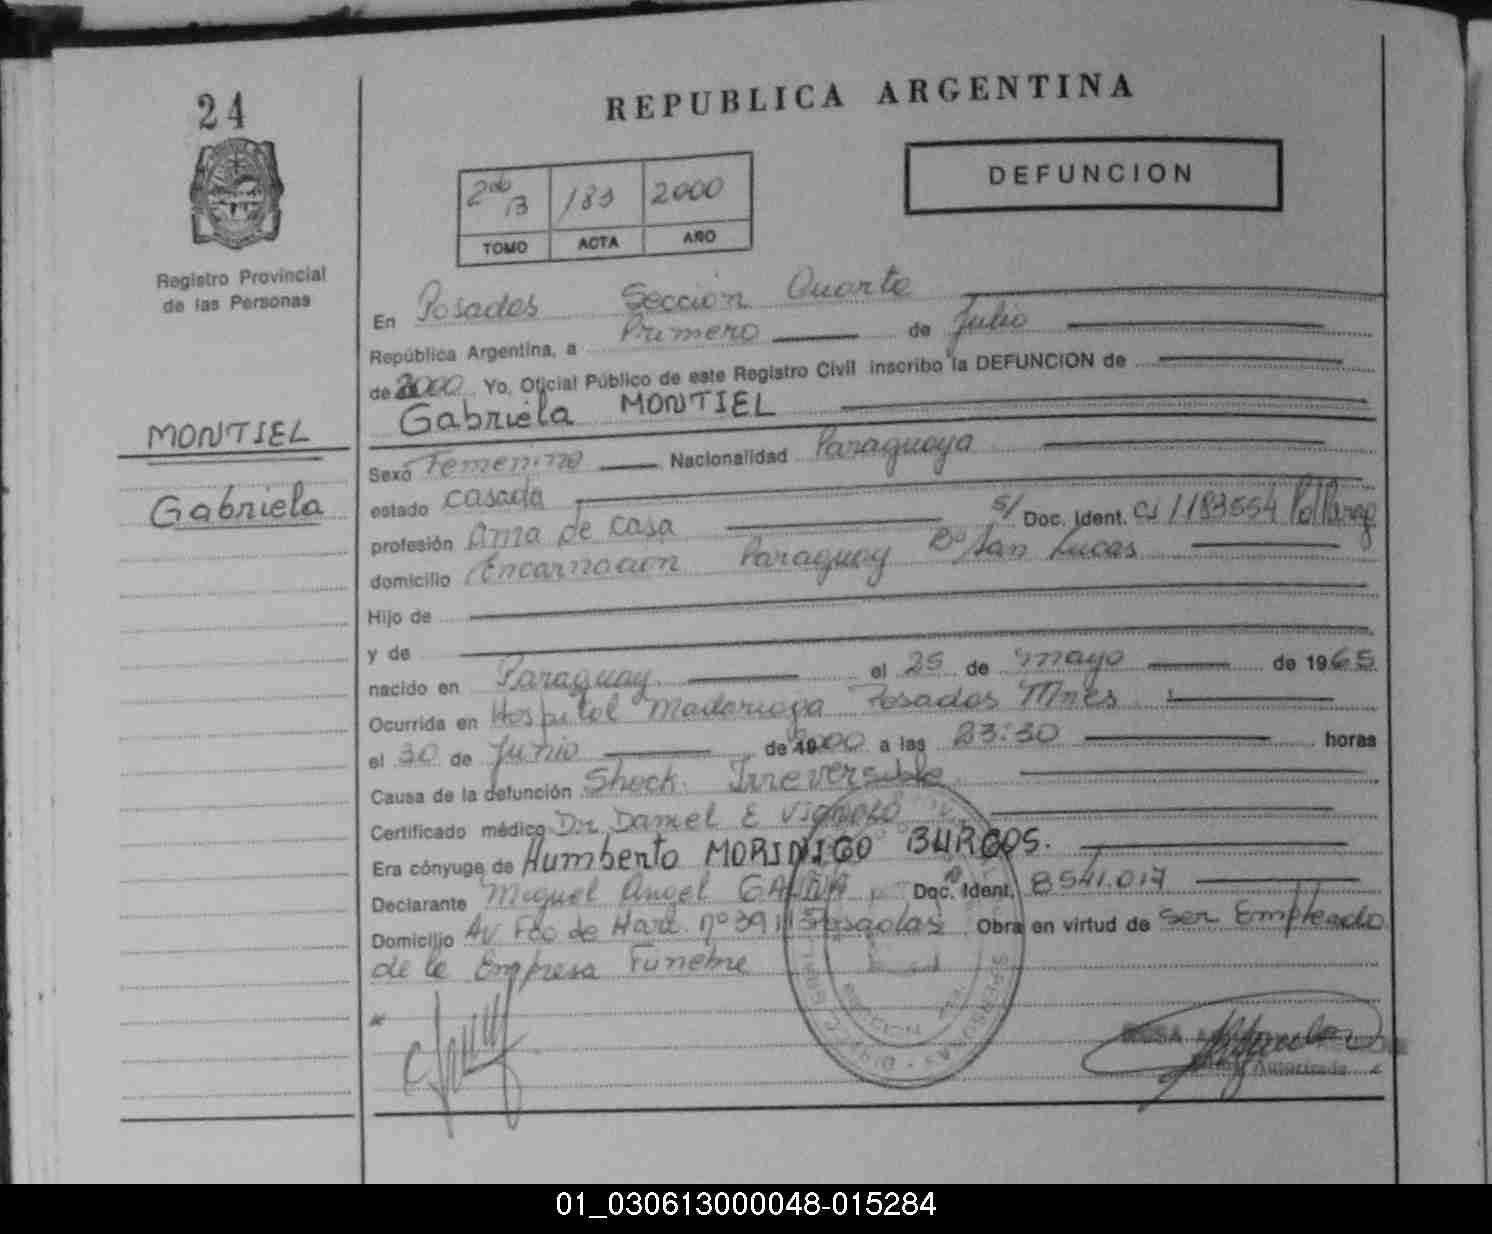 24
REPUBLICA ARGENTINA
DEFUNCION
2do B 183 2000
TOMO ACTA AÑO
Registro Provincial
de las Personas
En Posadas Seccion Quarta
República Argentina, a Primero de Julio
de 2000 Yo, Oficial Público de este Registro Civil inscribo la DEFUNCION de
Gabriela MONTIEL
MONTIEL
Gabriela
Sexo Femenino Nacionalidad Paraguaya
estado casada
profesión Ama de casa s/ Doc. Ident. CI 1183554 Pol Parag
domicilio Encarnacion Paraguay Bº San Lucas
Hijo de
y de
nacido en Paraguay el 25 de mayo de 1965
Ocurrida en Hospital Madariaga Posadas Mnes
el 30 de Junio de 2000 a las 23:30 horas
Causa de la defunción Shock Irreversible
Certificado médico Dr Daniel E
Era cónyuge de Humberto MORINIGO BURGOS.
Declarante Miguel Angel Doc. Ident. 8541.017
Domicilio Av Fdo de Haro nº 39 Posadas Obra en virtud de Ser Empleado
de la Empresa Funebre
01_030613000048-015284